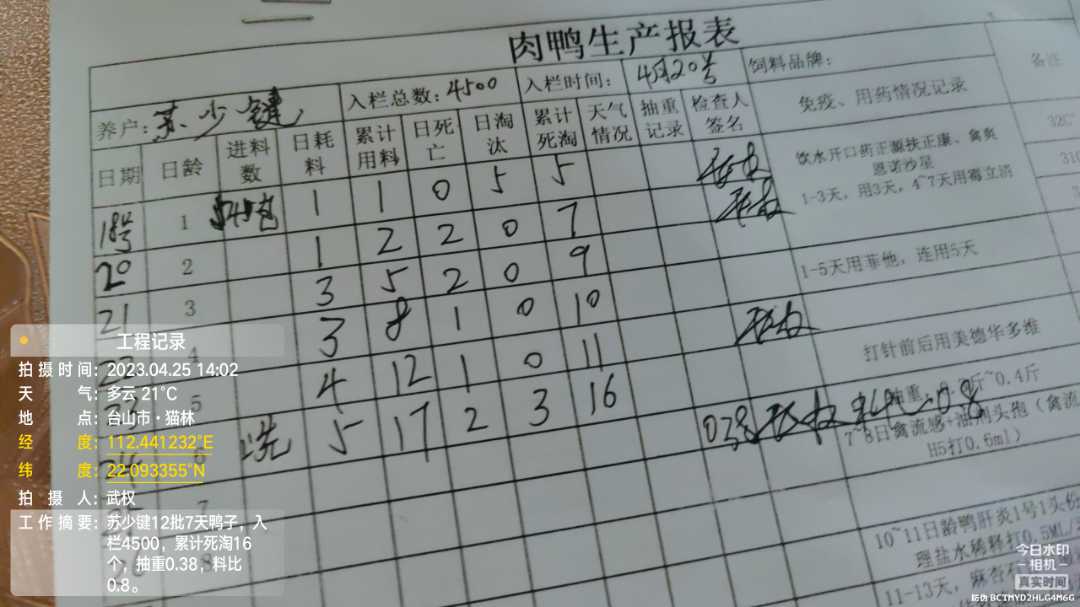 肉鸭生产报表
养户: 苏少键 入栏总数: 4500 入栏时间: 4月20号 饲料品牌: 备注
日期 日龄 进料数 日耗料 累计用料 日死亡 日淘汰 累计死淘 天气情况 抽重记录 检查人签名 免疫、用药情况记录
1 1 1 0 5 5
20 2 1 2 2 0 7
21 3 3 5 2 0 9
4 3 8 1 0 10
5 4 12 1 0 11
5 17 2 3 16 0.38
7
8
饮水开口药正瓢扶正康、禽爽
恩诺沙星
1-3天，用3天，4~7天用霉立消
1-5天用菲他，连用5天
打针前后用美德华多维
斤~0.4斤
7~8日禽流感+油剂头孢（禽流
H5打0.6ml）
10~11日龄鸭肝炎1号1头份
理盐水稀释打0.5ML/
11-13天，麻杏
工程记录
拍摄时间: 2023.04.25 14:02
天气: 多云 21℃
地点: 台山市·猫林
经度: 112.441232°E
纬度: 22.093355°N
拍摄人: 武权
工作摘要: 苏少键12批7天鸭子，入
栏4500，累计死淘16
个，抽重0.38，料比
0.8。
今日水印
相机
真实时间
防伪 BCTMYD2HLG4M6G